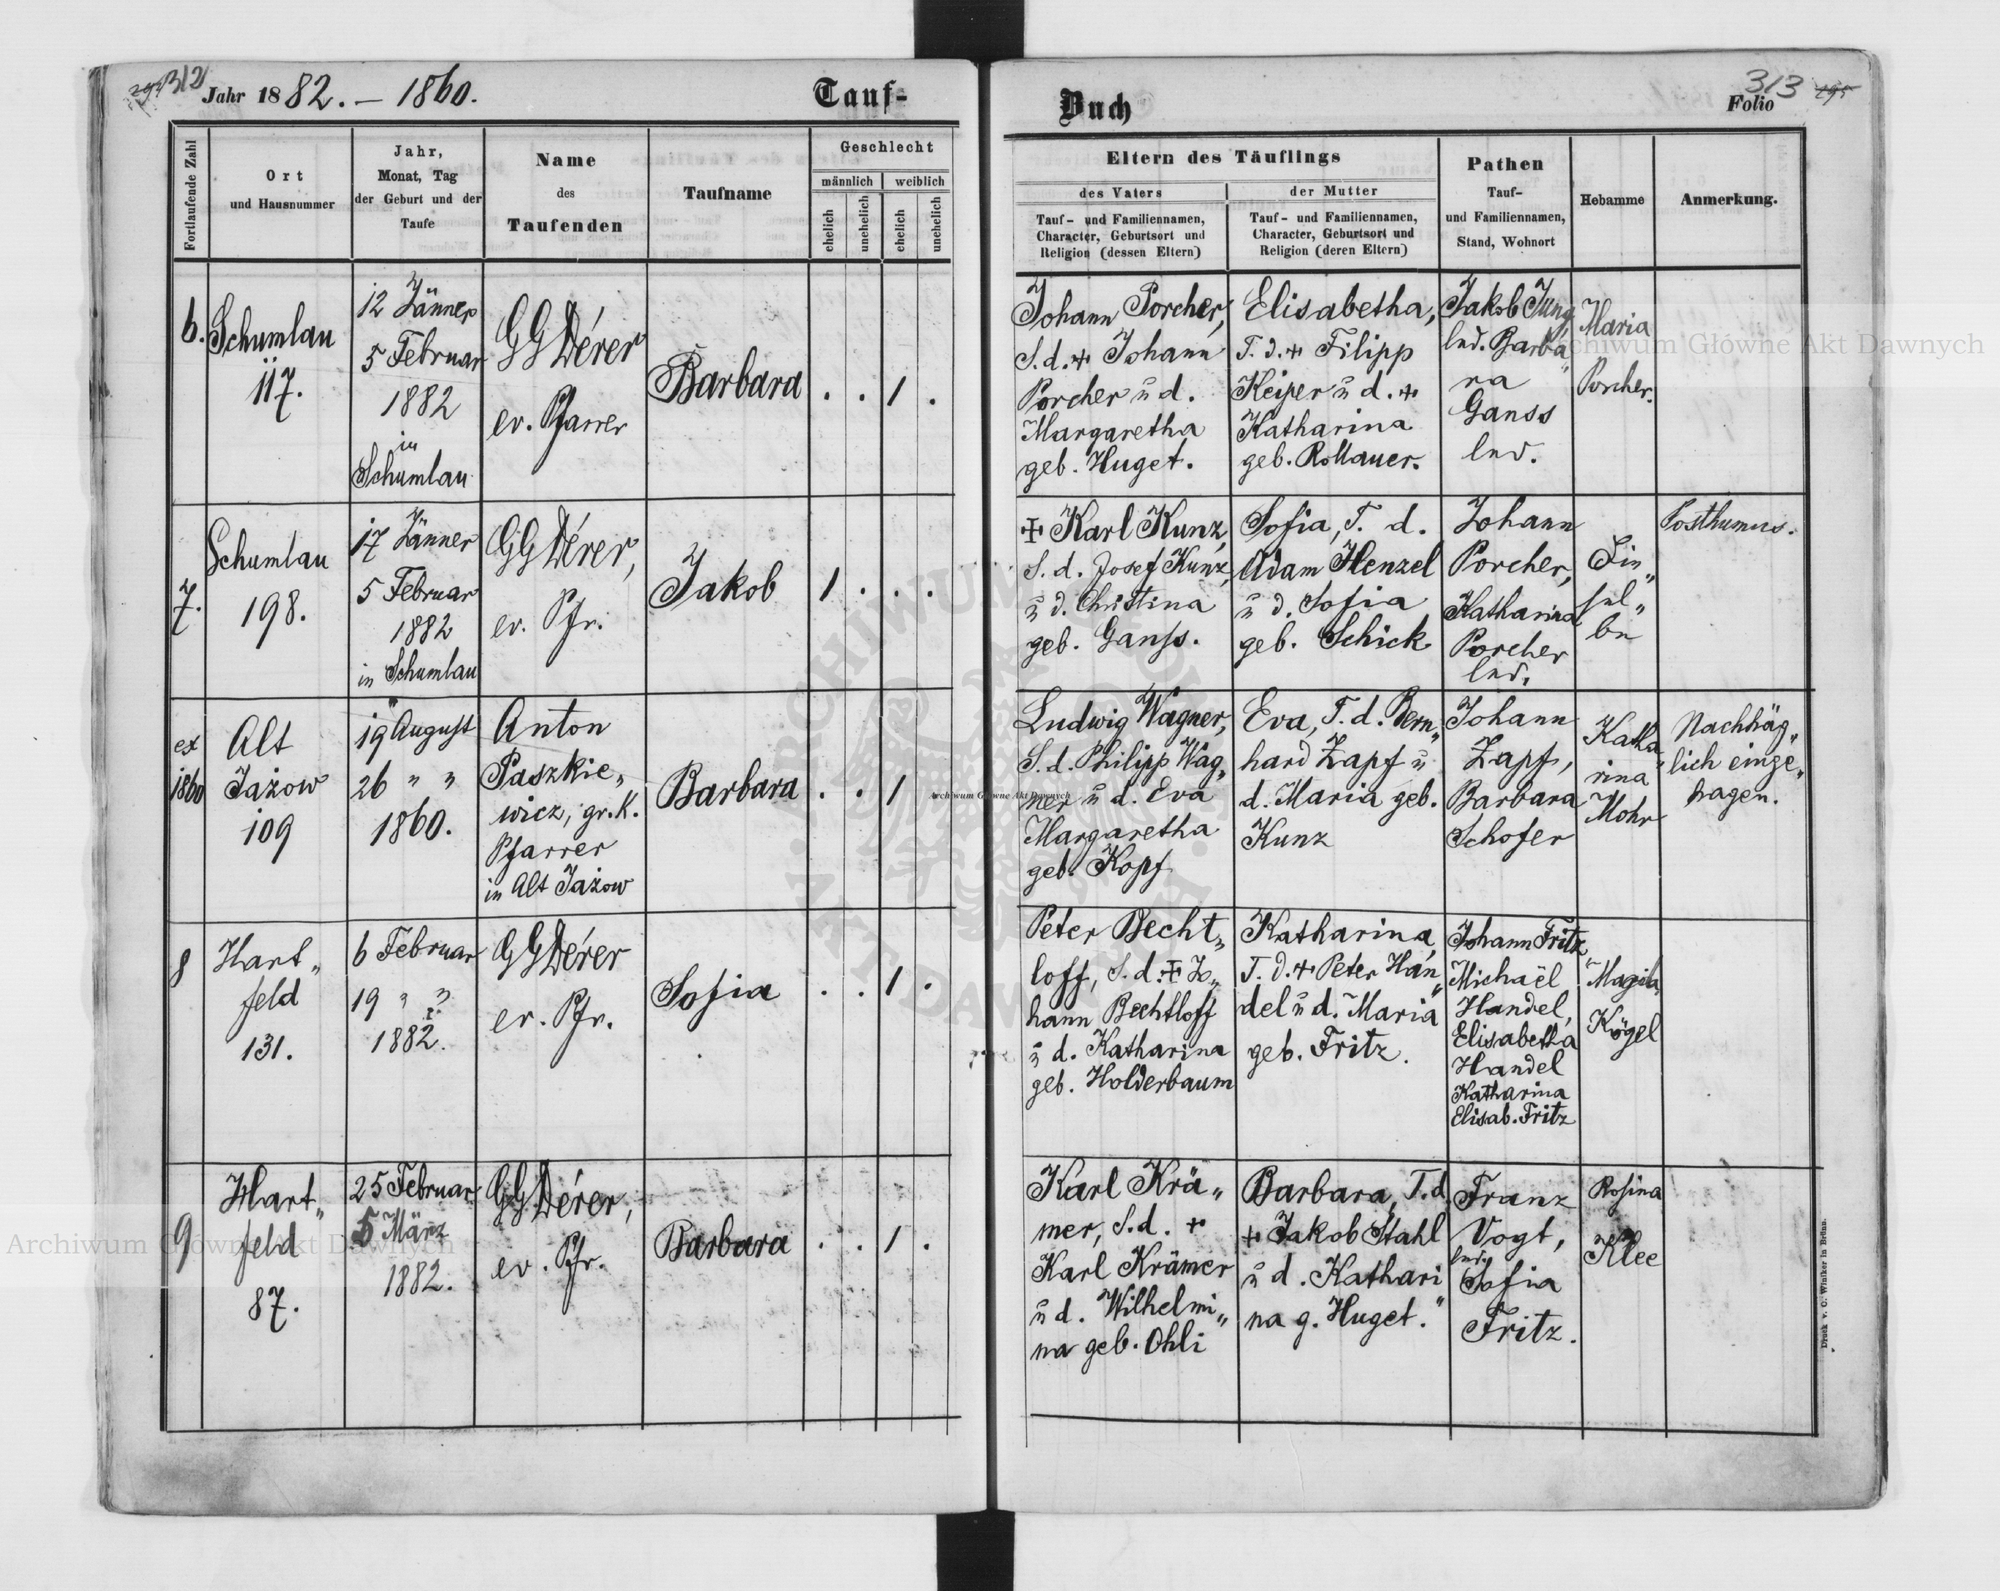 312
Jahr 1882. – 1860.
Tauf-
Fortlaufende Zahl
Ort
und Hausnummer
Jahr,
Monat, Tag
der Geburt und der
Taufe
Name
des
Taufenden
Taufname
Geschlecht
männlich
weiblich
ehelich
unehelich
ehelich
unehelich
6.
Schumlau
117.
12 Jänner
5 Februar
1882
in
Schumlau
GGDérer
ev. Pfarrer
Barbara
. . 1 .
7.
Schumlau
198.
17 Jänner
5 Februar
1882
in Schumlau
GGDérer,
ev. Pfr.
Jakob
1 . . .
ex
1860
Alt
Jażow
109
19 August
26 " "
1860.
Anton
Paszkie„
wicz, gr. K.
Pfarrer
in Alt Jażow
Barbara
. . 1 .
8
Hart„
feld
131.
6 Februar
19 " "
1882.
GGDérer
ev. Pfr.
Sofia
. . 1 .
9
Hart„
feld
87.
25 Februar
5 März
1882.
GGDérer,
ev. Pfr.
Barbara
. . 1 .
Buch
313
Folio
Eltern des Täuflings
des Vaters
Tauf- und Familiennamen,
Character, Geburtsort und
Religion (dessen Eltern)
der Mutter
Tauf- und Familiennamen,
Character, Geburtsort und
Religion (deren Eltern)
Pathen
Tauf-
und Familiennamen,
Stand, Wohnort
Hebamme
Anmerkung.
Johann Porcher,
S. d. + Johann
Porcher ŭ d.
Margaretha
geb. Huget.
Elisabetha,
T. d. + Filipp
Keiper ŭ d. +
Katharina
geb. Rollauer.
Jakob Jung,
led. Barba„
ra
Ganss
led.
Maria
Porcher.
+ Karl Kunz,
S. d. Josef Kunz,
ŭ d. Christina
geb. Ganss.
Sofia, T. d.
Adam Henzel
ŭ d. Sofia
geb. Schick
Johann
Porcher,
Katharina
Porcher
led.
Posthumus.
Ludwig Wagner,
S. d. Philipp Wag„
ner ŭ d. Eva
Margaretha
geb. Kopf
Eva, T. d. Bern„
hard Zapf ŭ
d. Maria geb.
Kunz
Johann
Zapf,
Barbara
Schofer
Katha„
rina
Mohr
Nachträg„
lich einge„
tragen.
Peter Becht„
loff, S. d. + Jo„
hann Bechtloff
ŭ d. Katharina
geb. Holderbaum
Katharina,
T. d. + Peter Han„
del ŭ d. Maria
geb. Fritz.
Johann Fritz,
Michaël
Handel,
Elisabetha
Handel
Katharina
Elisab. Fritz
Kögel
Karl Krä„
mer, S. d. +
Karl Krämer
ŭ d. Wilhelmi„
na geb. Ohli
Barbara, T. d.
+ Jakob Stahl
ŭ d. Kathari„
na g. Huget.
Franz
Vogt,
led.
Sofia
Fritz.
Rosina
Klee
Druck v. C. Winiker in Brünn.
Archiwum Główne Akt Dawnych
Archiwum Główne Akt Dawnych
Archiwum Główne Akt Dawnych